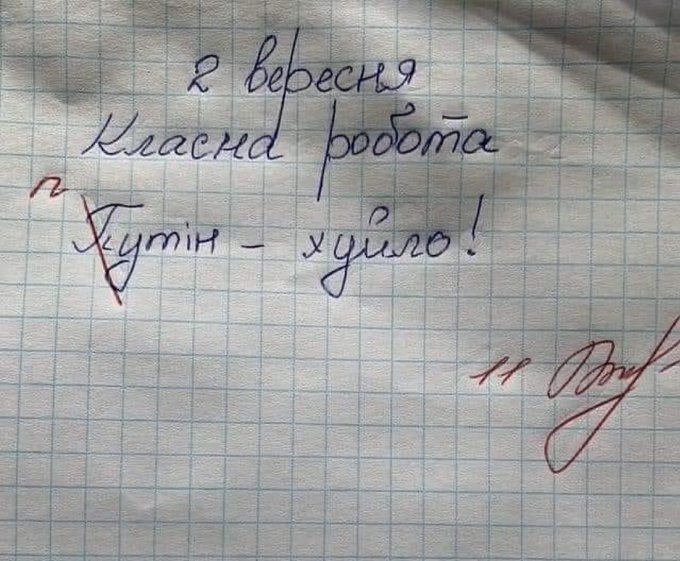 2 вересня
Класна робота
п
Путін - хуйло!
11